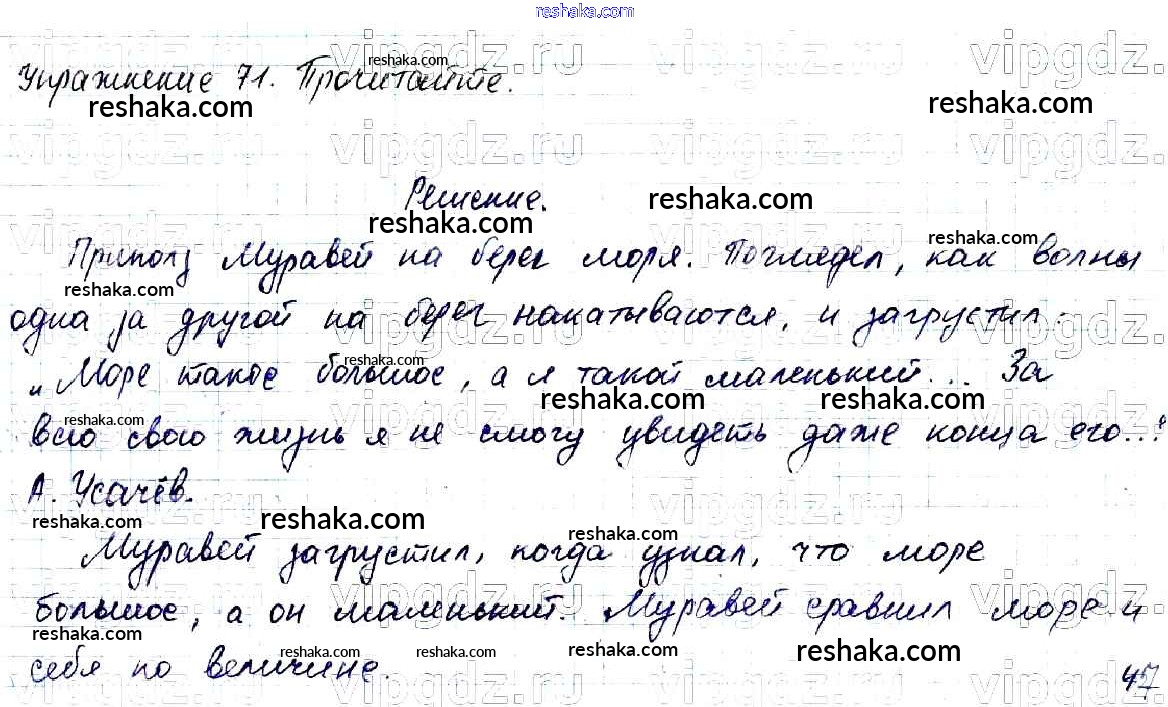 reshaka.com
Упражнение 71. Прочитайте.
Решение.
Приполз Муравей на берег моря. Поглядел, как волны
одна за другой на берег накатываются, и загрустил:
„Море такое большое, а я такой маленький... За
всю свою жизнь я не смогу увидеть даже конца его..."
А. Усачёв.
Муравей загрустил, когда узнал, что море
большое, а он маленький. Муравей сравнил море и
себя по величине.
47